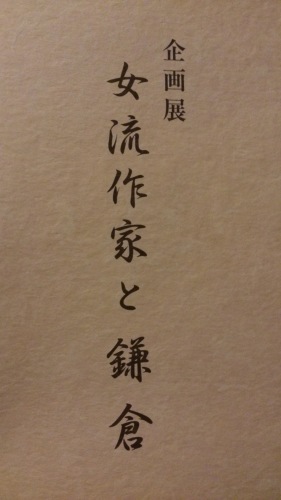 企画展
女流作家と鎌倉